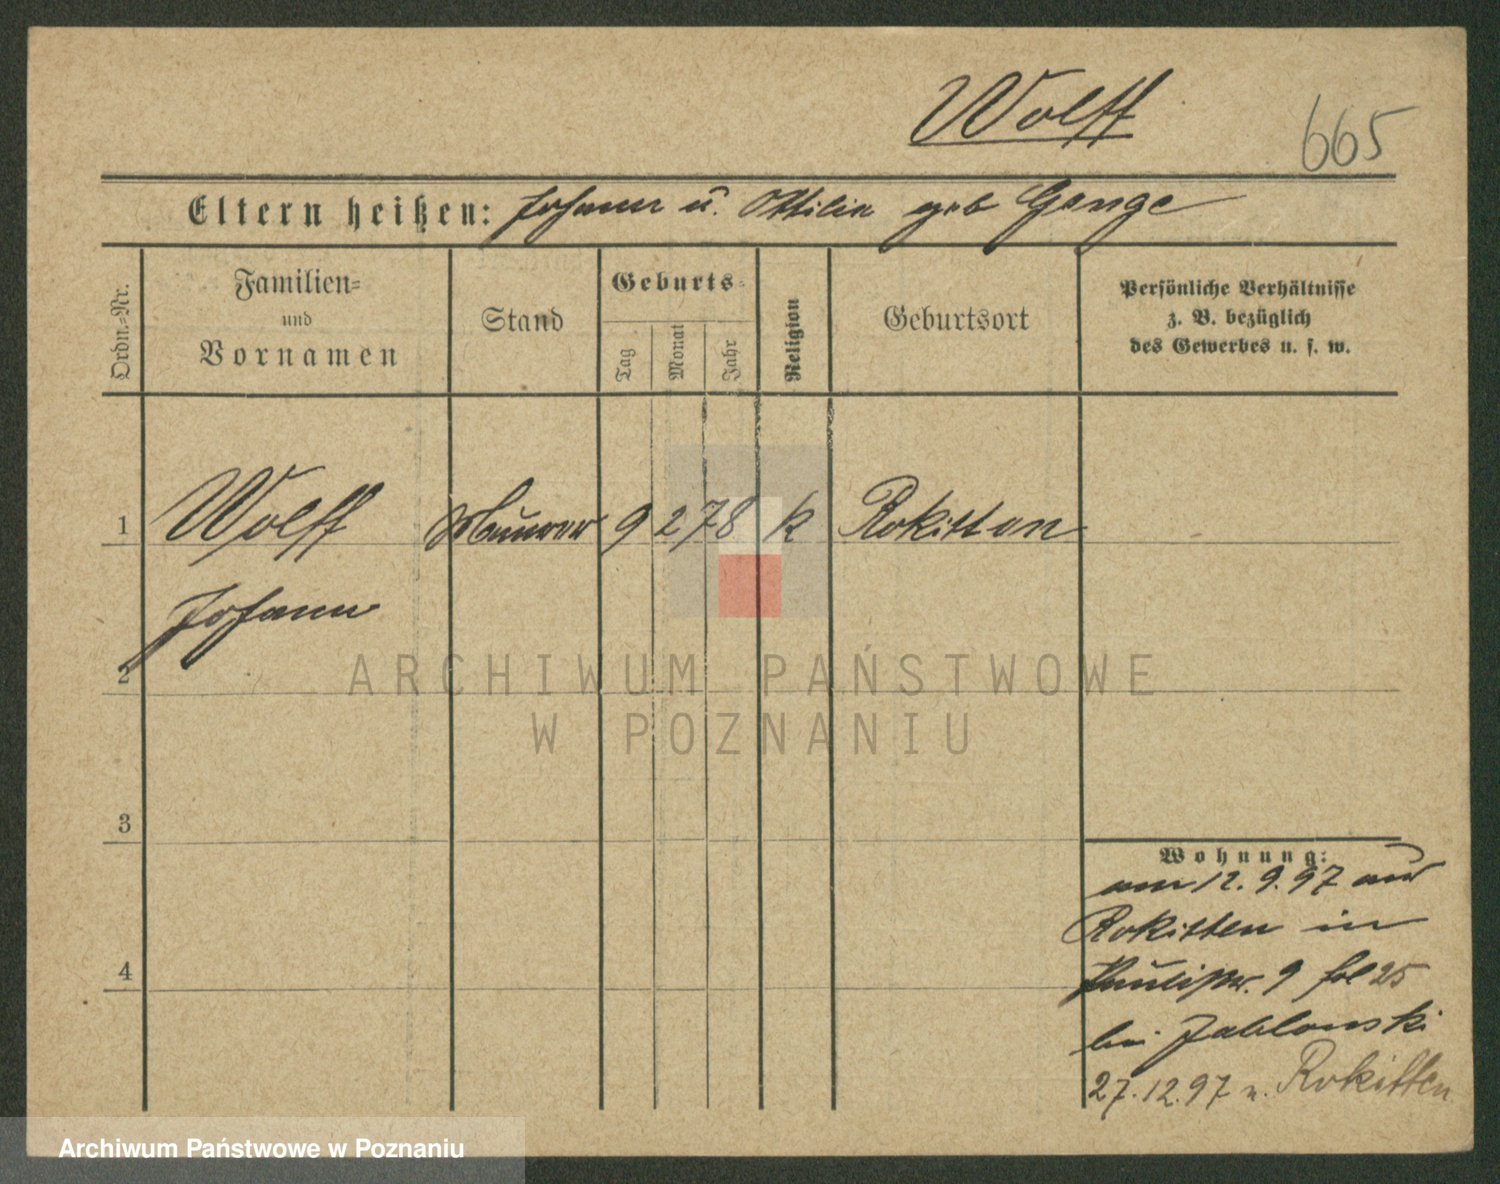 Wolff
665
Eltern heißen: Johann u. Ottilie geb Gange
Ordn.-Nr.
Familien-
und
Vornamen
Stand
Geburts-
Tag
Monat
Jahr
Religion
Geburtsort
Persönliche Verhältnisse
z. B. bezüglich
des Gewerbes u. s. w.
1 Wolff Maurer 9 2 78 k Rokitten
Johann
2
ARCHIWUM PAŃSTWOWE
W POZNANIU
3
4
Wohnung:
am 12.9.97 aus
Rokitten in
Paulistr. 9 fol 25
bei Jablonski
27.12.97 n. Rokitten
Archiwum Państwowe w Poznaniu